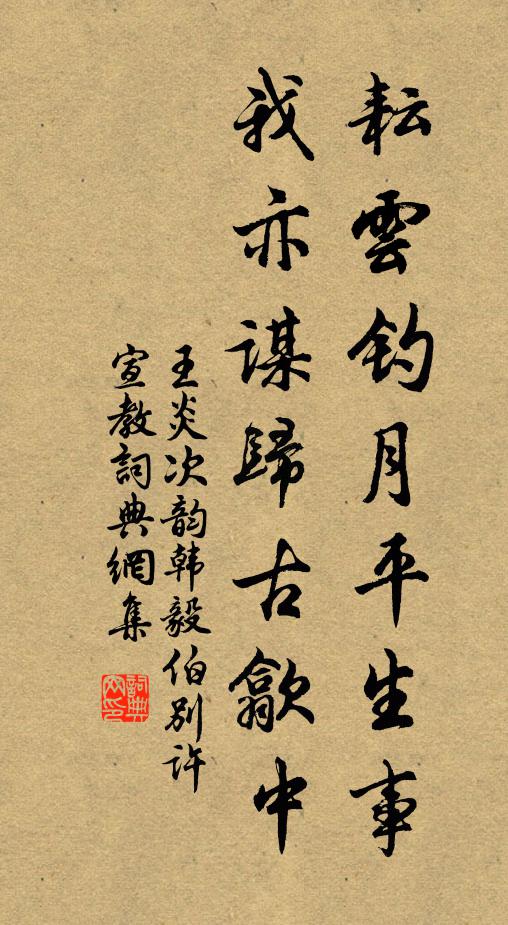 耘雲釣月平生事
我亦謀歸古歙中
王炎次韵韩毅伯別许
宣教詞典網集
詞典网印